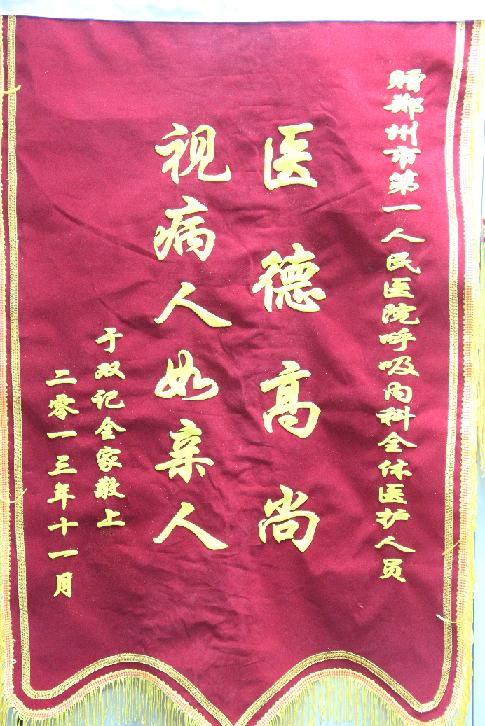 赠郑州市第一人民医院呼吸内科全体医护人员
医德高尚
视病人如亲人
于双记全家敬上
二零一三年十一月